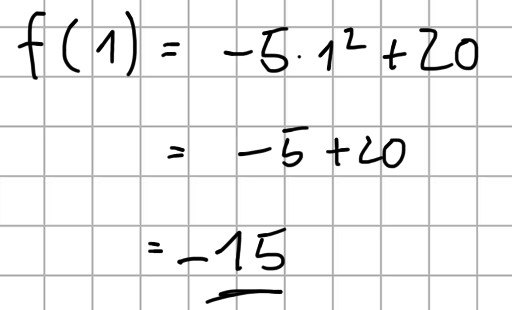 f(1) = -5·1²+20
= -5+20
= -15